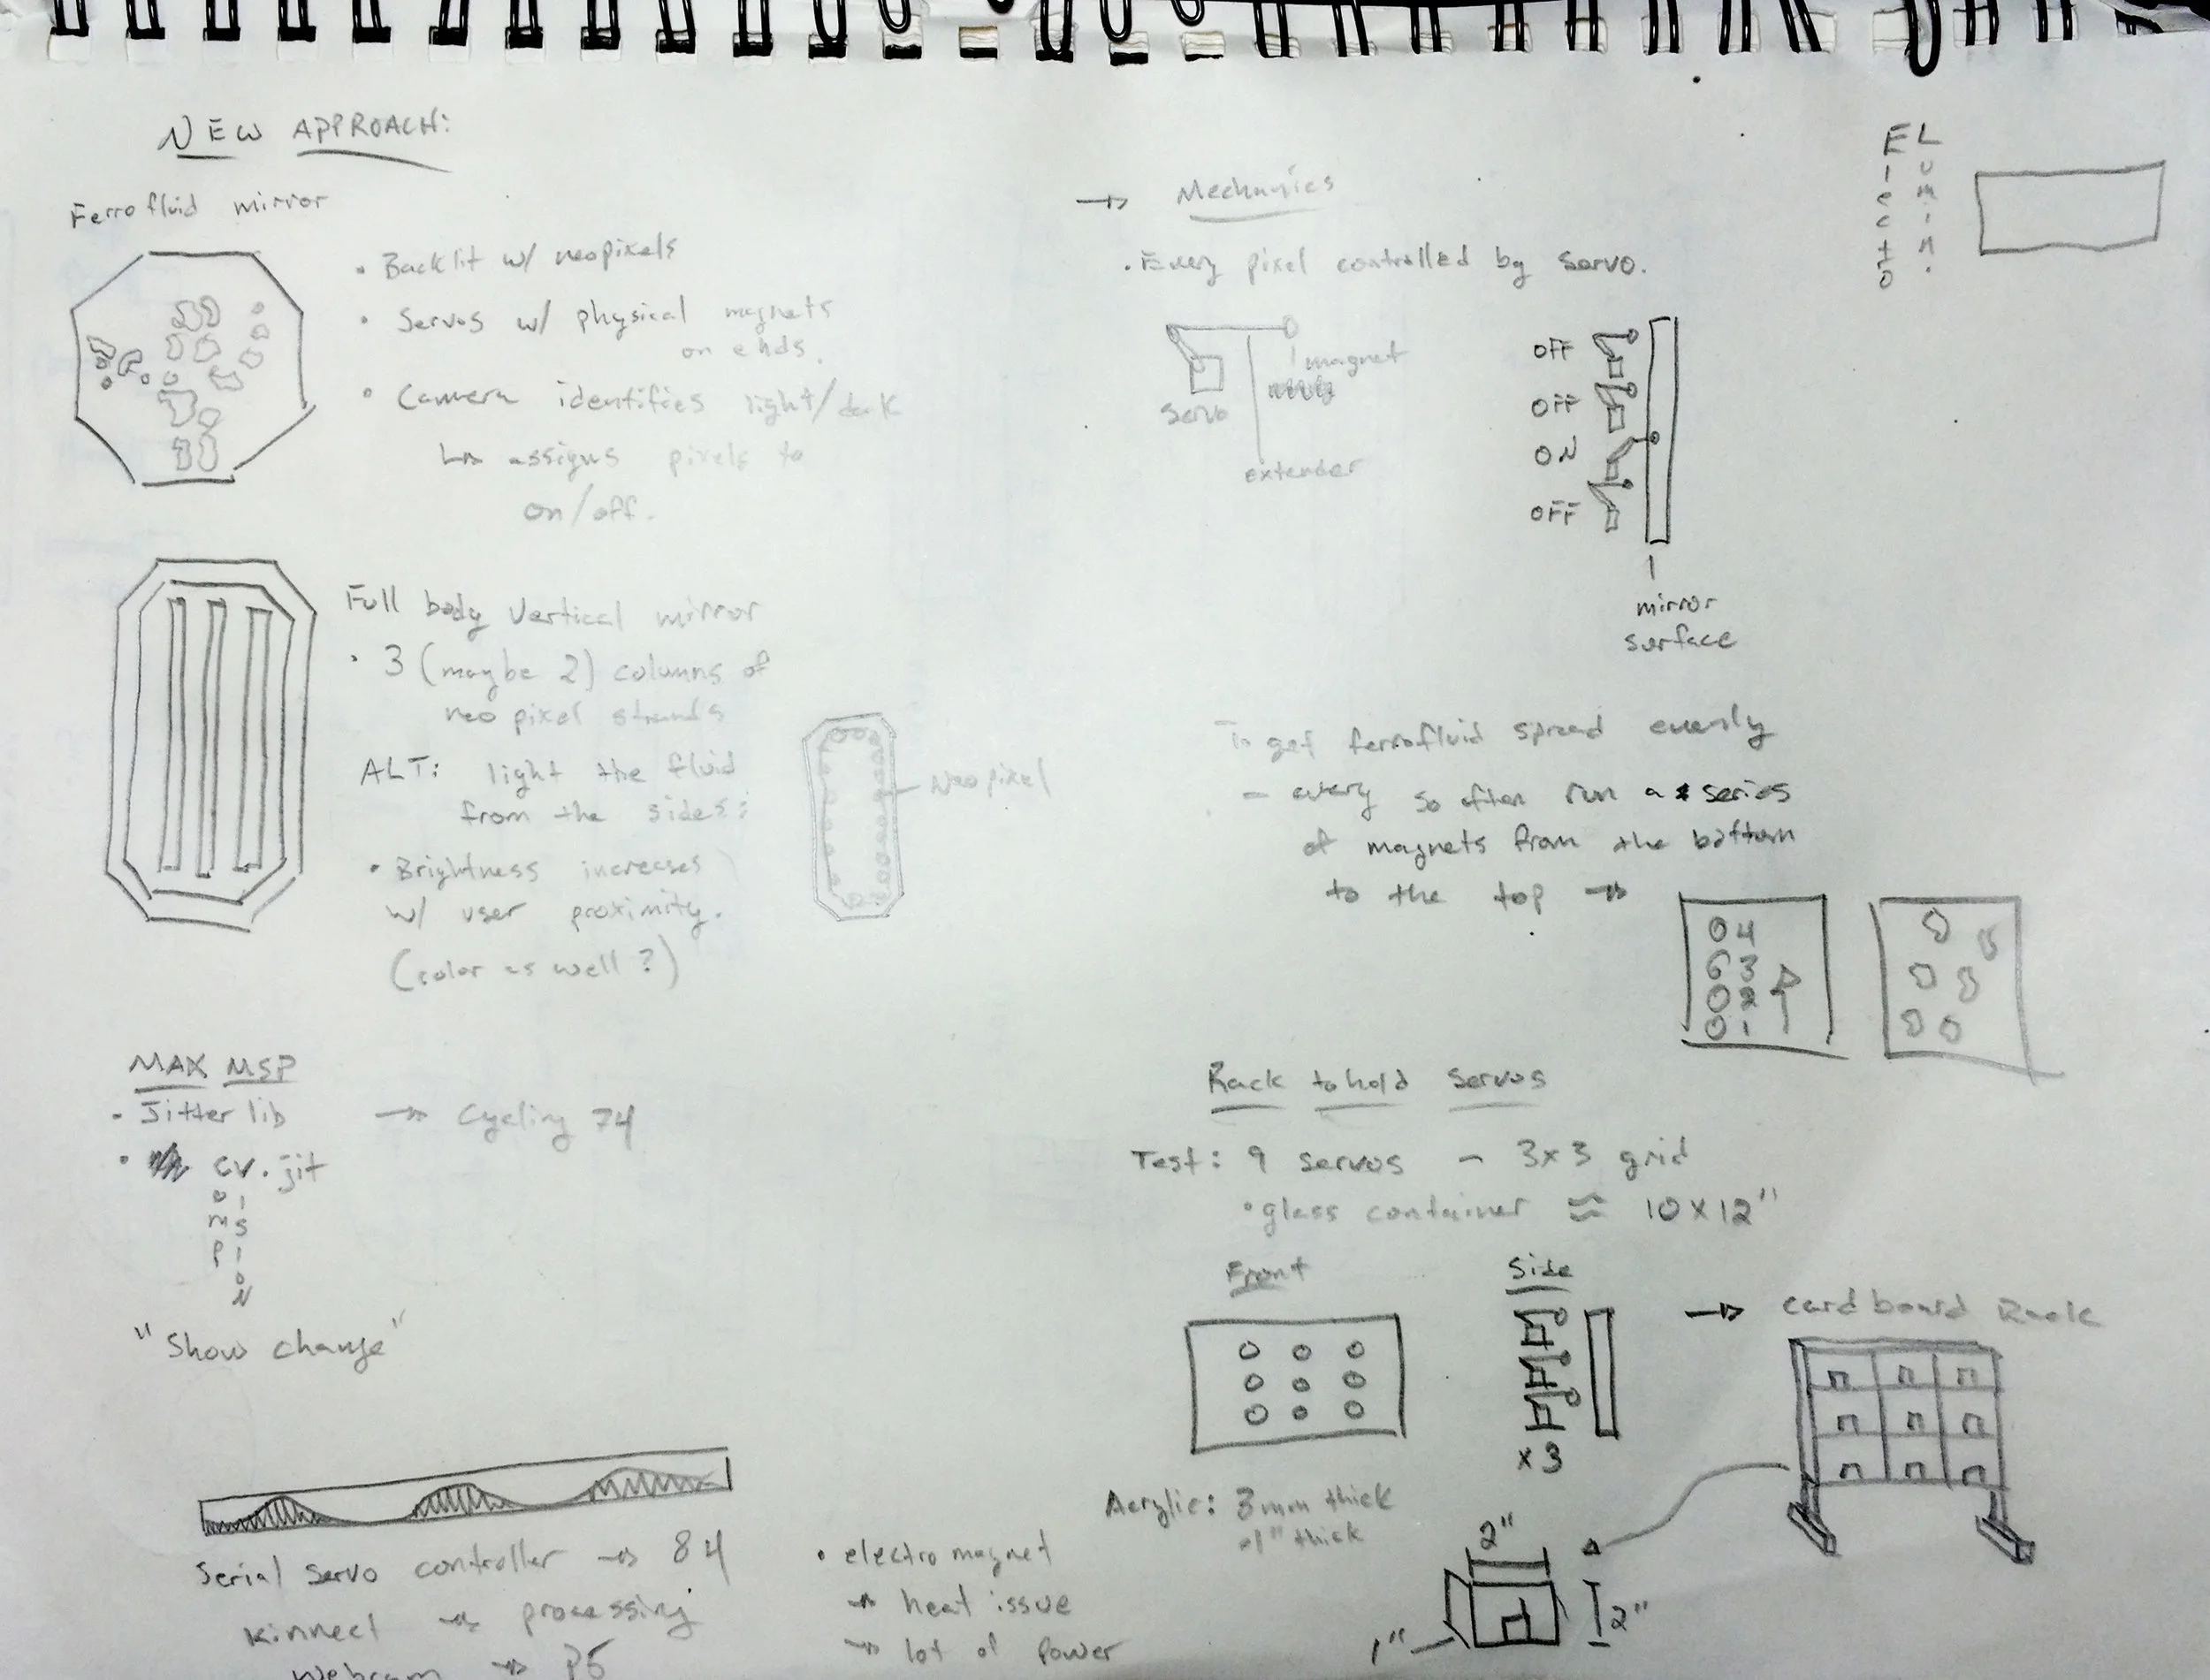 NEW APPROACH:
Ferrofluid mirror
• Backlit w/ neopixels
• Servos w/ physical magnets
on ends.
• Camera identifies light/dark
↳ assigns pixels to
on/off.
Full body vertical mirror
• 3 (maybe 2) columns of
neo pixel strands
ALT: light the fluid
from the sides:
Neopixel
• Brightness increases
w/ user proximity.
(color as well?)
MAX MSP
• Jitter lib → Cycling 74
• cv.jit
omp
ision
"Show change"
Serial servo controller → 84
Kinnect → processing
Webcam → P5
• electro magnet
→ heat issue
→ lot of power
→ Mechanics
• Every pixel controlled by servo.
servo
magnet
extender
OFF
OFF
ON
OFF
mirror
surface
Electo
Lumin.
To get ferrofluid spread evenly
- every so often run a series
of magnets from the bottom
to the top →
4
3
2
1
Rack to hold servos
Test: 9 servos - 3x3 grid
• glass container ≈ 10x12"
Front
Side
→ cardboard Rack
x3
Acrylic: 3mm thick
1" thick
2"
2"
1"